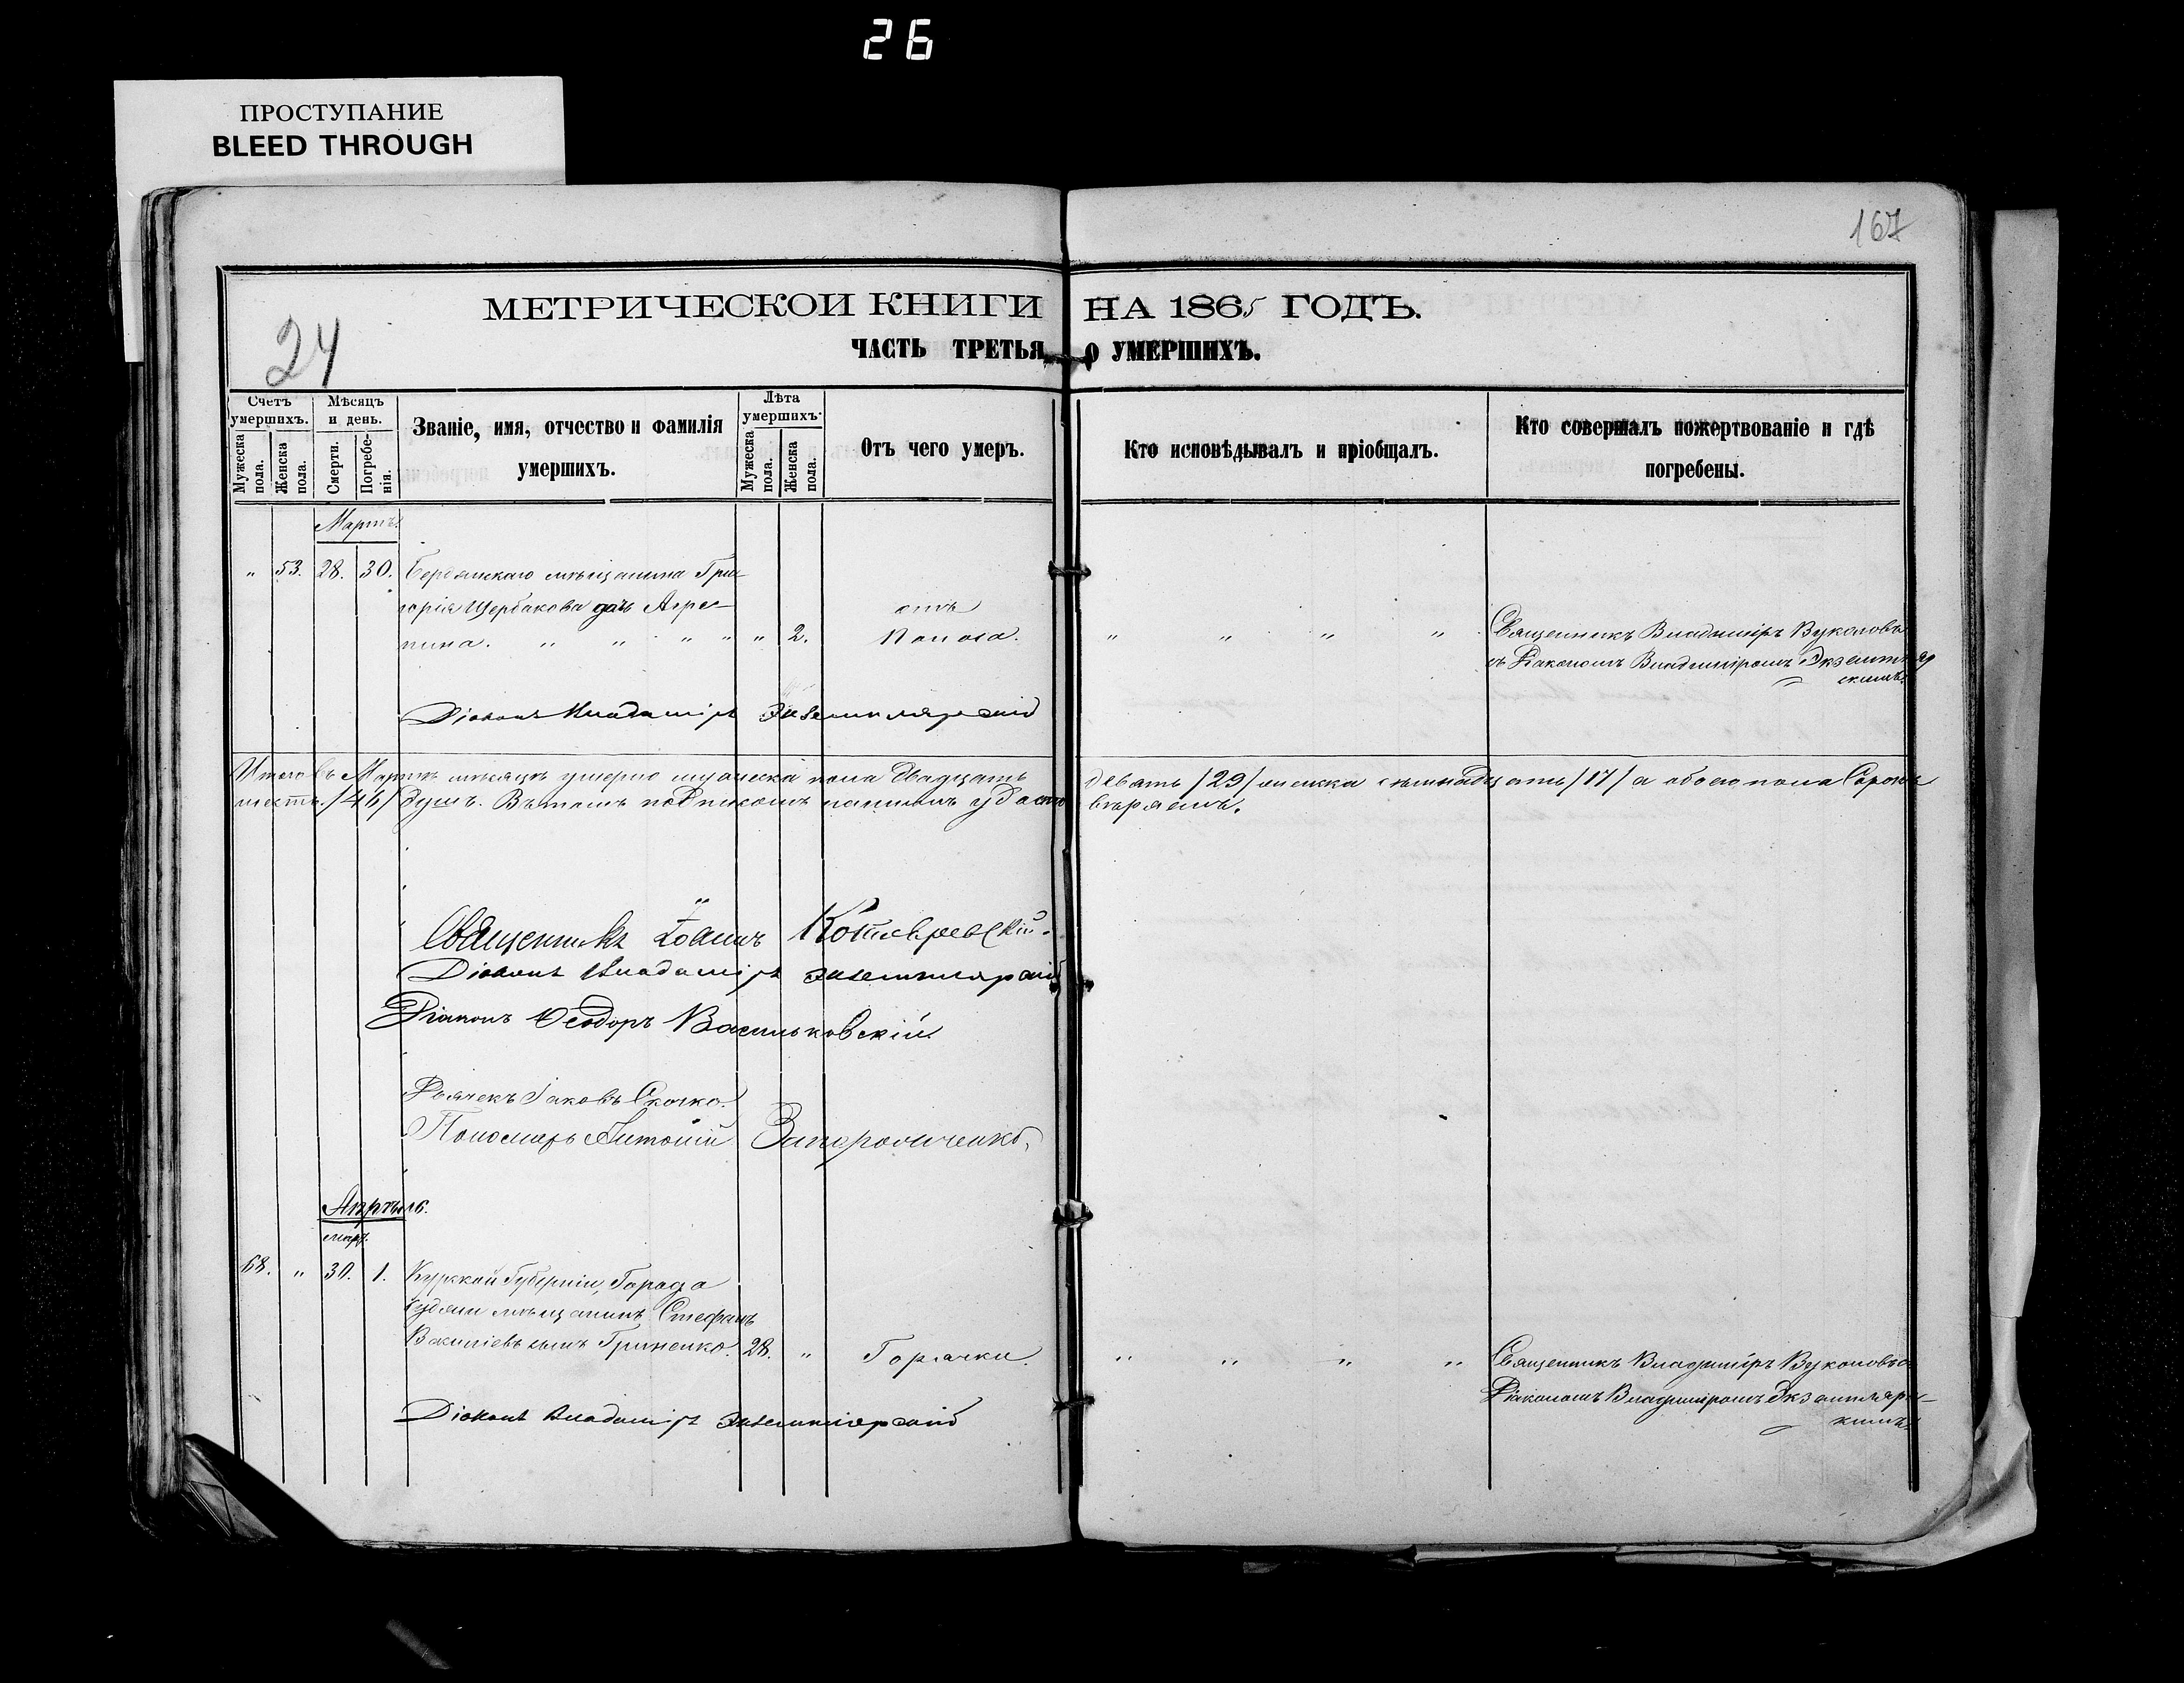 26
ПРОСТУПАНИЕ
BLEED THROUGH
167
24
МЕТРИЧЕСКОЙ КНИГИ НА 1865 ГОДЪ.
ЧАСТЬ ТРЕТЬЯ, О УМЕРШИХЪ.
Счетъ умершихъ.
Мужеска пола.
Женска пола.
Мѣсяцъ и день.
Смерти.
Погребенія.
Званіе, имя, отчество и фамилія умершихъ.
Лѣта умершихъ.
Мужеска пола.
Женска пола.
Отъ чего умеръ.
Кто исповѣдывалъ и пріобщалъ.
Кто совершалъ пожертвованіе и гдѣ погребены.
Мартъ.
" 53. 28. 30. Бердянскаго мѣщанина Гри-
горія Щербакова дочь Агре- отъ
пина. " " " " " 2. Поноса. " " " " Священникъ Владиміръ Вуколовъ
съ Діакономъ Владиміромъ Экземпляр
скимъ.
Діаконъ Владиміръ Экземплярскій
Итого въ Мартѣ мѣсяцѣ умерло мужеска пола двадцать девять /29/ женска семнадцать /17/ а обоего пола Сорокъ
шесть /46/ душъ. Въ томъ подписомъ нашимъ удосто вѣряемъ.
Священникъ Іоаннъ Котляревскій.
Діаконъ Владиміръ Экземплярскій
Діаконъ Ѳеодоръ Васильковскій
Дьячекъ Іаковъ Скочко.
Пономарь Антоній Запорожченко,
Апрѣль.
мар.
68. " 30. 1. Курской Губерніи, Города
Суджи мѣщанинъ Стефанъ
Василіевъ сынъ Гриненко. 28. " Горячки. " " " " Священникъ Владиміръ Вуколовъ съ
Діакономъ Владиміромъ Экземпляр-
скимъ.
Діаконъ Владиміръ Экземплярскій